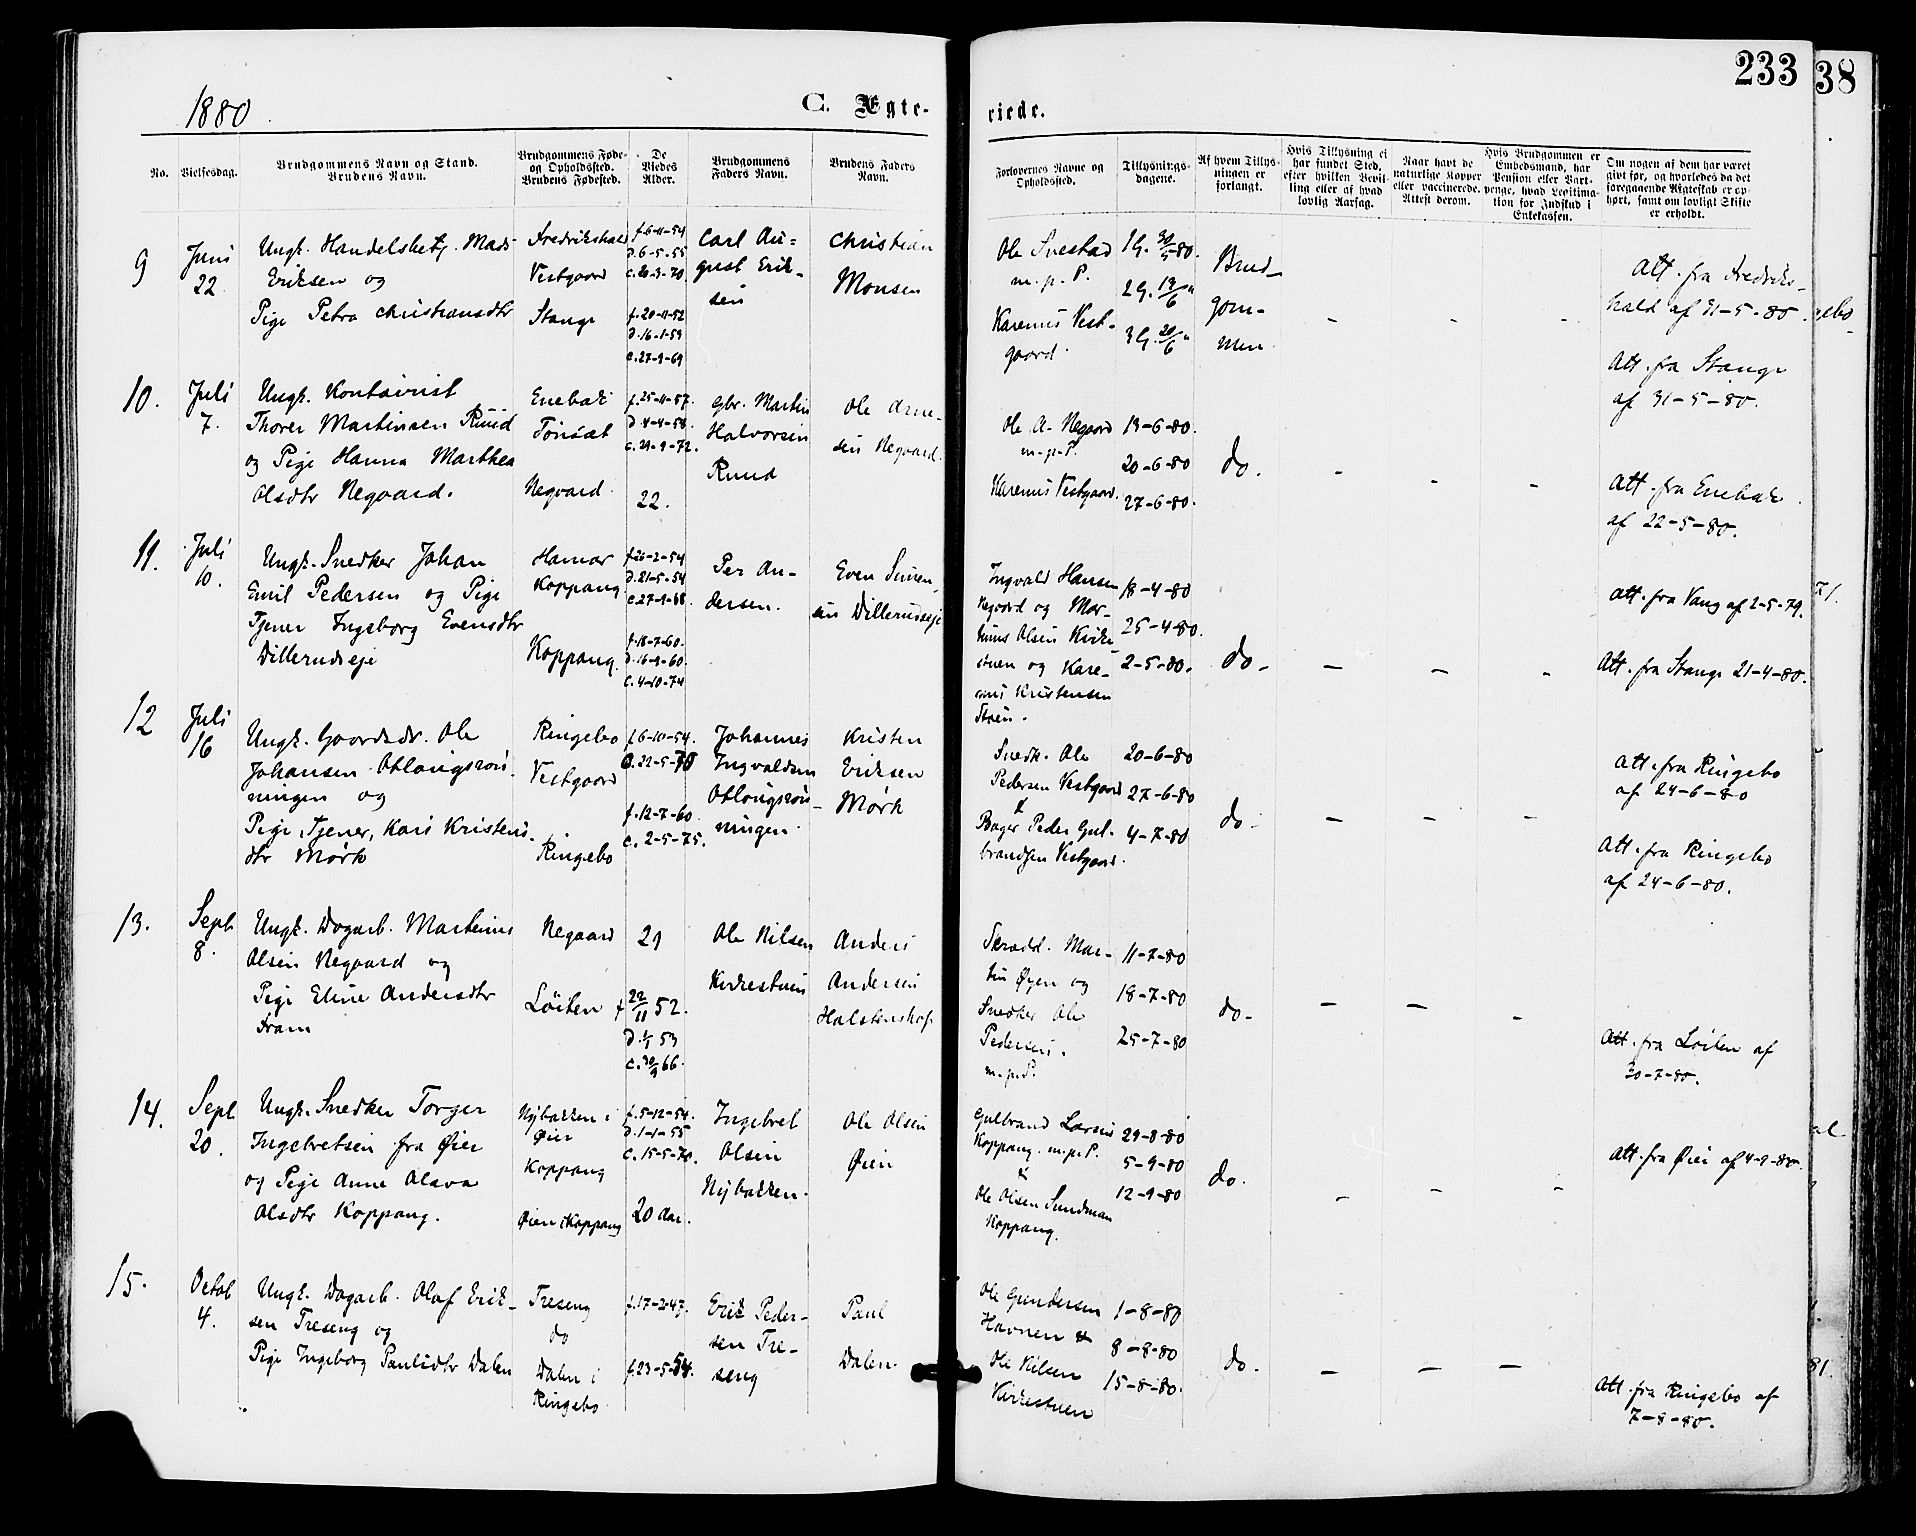 1880
C. Egte-
viede.
233
38
No.
Vielsesdag.
Brudgommens Navn og Stand.
Brudens Navn.
Brudgommens Føde-
og Opholdssted.
Brudens Fødested.
De
Viedes
Alder.
Brudgommens
Faders Navn.
Brudens Faders
Navn.
Forlovernes Navne og
Opholdssted.
Tillysnings-
dagene.
Af hvem Tillys-
ningen er
forlangt.
Hvis Tillysning ei
har fundet Sted,
efter hvilken Bevil-
ling eller af hvad
lovlig Aarsag.
Naar havt de
naturlige Kopper
eller vaccinerede.
Attest derom.
Hvis Brudgommen er
Embedsmand, har
Pension eller Vart-
penge, hvad Legitima-
tion for Indskud i
Enkekassen.
Om nogen af dem har været
gift før, og hvorledes da det
foregaaende Ægteskab er op-
hørt, samt om lovligt Skifte
er erholdt.
9
Juni
22
Ungk. Handelsbetj. Mads
Eriksen og
Pige Petra Christiansdtr
Fredrikshald
Vestgaard
Stange
f. 6-11-54
d. 6-5-55
c. 20-3-70
f. 20-11-52
d. 16-1-53
c. 27-9-69
Carl Au=
gust Erik-
sen
Christian
Monsen
Ole Snestad
m. p. P.
Karenus Vest-
gaard.
1 G. 30/5 80.
2 G. 13/6 "
3 G. 20/6 "
Brud-
gom-
men
Att. fra Fredriks-
hald af 31-5-80.
Att. fra Stange
af 31-5-80.
10.
Juli
7.
Ungk. Kontorist
Thorer Martinsen Ruud
og Pige Hanna Marthea
Olsdtr Negaard.
Enebak
Tønsæt
Negaard.
f. 25-11-57.
d. 4-4-58.
c. 29-9-72.
22.
Gbr. Martin
Halvorsen
Ruud
Ole Arne-
sen Negaard.
Ole A. Negaard
m. p. P.
Karenus Vestgaard.
13-6-80.
20-6-80
27-6-80.
do.
Att. fra Enebak
af 22-5-80.
11.
Juli
10.
Ungk. Snedker Johan
Emil Pedersen og Pige
Tjener Ingeborg Evensdtr
Dillerudseje
Hamar
Koppang
Koppang
f. 26-2-54
d. 21-5-54
c. 27-9-68.
f. 18-7-60.
d. 16-9-60.
c. 4-10-74
Per An-
dersen.
Even Simen-
sen Dillerudseje
Ingvald Hansen
Negaard og Mar-
tinus Olsen Kirke-
stuen og Kare-
nus Kristensen
Støen.
18-4-80
25-4-80.
2-5-80.
do-
Att. fra Vang af 2-5-79.
Att. fra Stange 21-4-80.
12
Juli
16
Ungk. Gaardsdr. Ole
Johansen Atlaugsrøn-
ningen og
Pige, Tjener, Kari Kristens-
dtr Mørk
Ringebo
Vestgaard
Ringebo
f. 6-10-54.
c. 22-5-70
f. 12-7-60.
c. 2-5-75.
Johannes
Ingvaldsen
Atlaugsrøn-
ningen.
Kristen
Eriksen
Mørk
Snedk. Ole
Pedersen Vestgaard
&
Bager Peder Gul-
brandsen Vestgaard.
20-6-80
27-6-80
4-7-80
do.
Att. fra Ringebo
af 24-6-80
Att. fra Ringebo
af 24-6-80.
13.
Sept
8.
Ungk. Dagarb. Martinus
Olsen Negaard og
Pige Eline Andersdtr
Fram
Negaard
Løiten
29
f 22/11 52.
d. 1/1 53
c. 30/9 66.
Ole Nilsen
Kirkestuen
Anders
Andersen
Halstenshof.
Skrædd. Mar-
tin Øyen og
Snedker Ole
Pedersen.
m. p. P.
11-7-80
18-7-80
25-7-80
do-
Att. fra Løiten af
30-7-80.
14.
Sept
20.
Ungk. Snedker Torger
Ingebretsen fra Øier
og Pige Anne Olava
Olsdtr Koppang.
Nybakken i
Øier
Koppang
Øien i Koppang
f. 5-12-54.
d. 1-1-55
c. 15-5-70.
20 Aar.
Ingebret
Olsen
Nybakken.
Ole Olsen
Øien
Gulbrand Larsen
Koppang. m. p. P.
&
Ole Olsen Sundman
Koppang.
29-8-80
5-9-80
12-9-80
do.
Att. fra Øier af 4-9-80.
15.
Octob
4.
Ungk. Dagarb. Olaf Erik-
sen Treseng og
Pige Ingeborg Paulsdtr Dalen
Treseng
do
Dalen i
Ringebo
f. 17-2-47.
f. 23-5-54.
Erik Peder-
sen Tre-
seng
Paul
Dalen.
Ole Gundersen
Havnen &
Ole Nilsen
Kirkestuen
1-8-80
8-8-80
15-8-80.
do.
Att. fra Ringebo af
7-8-80.